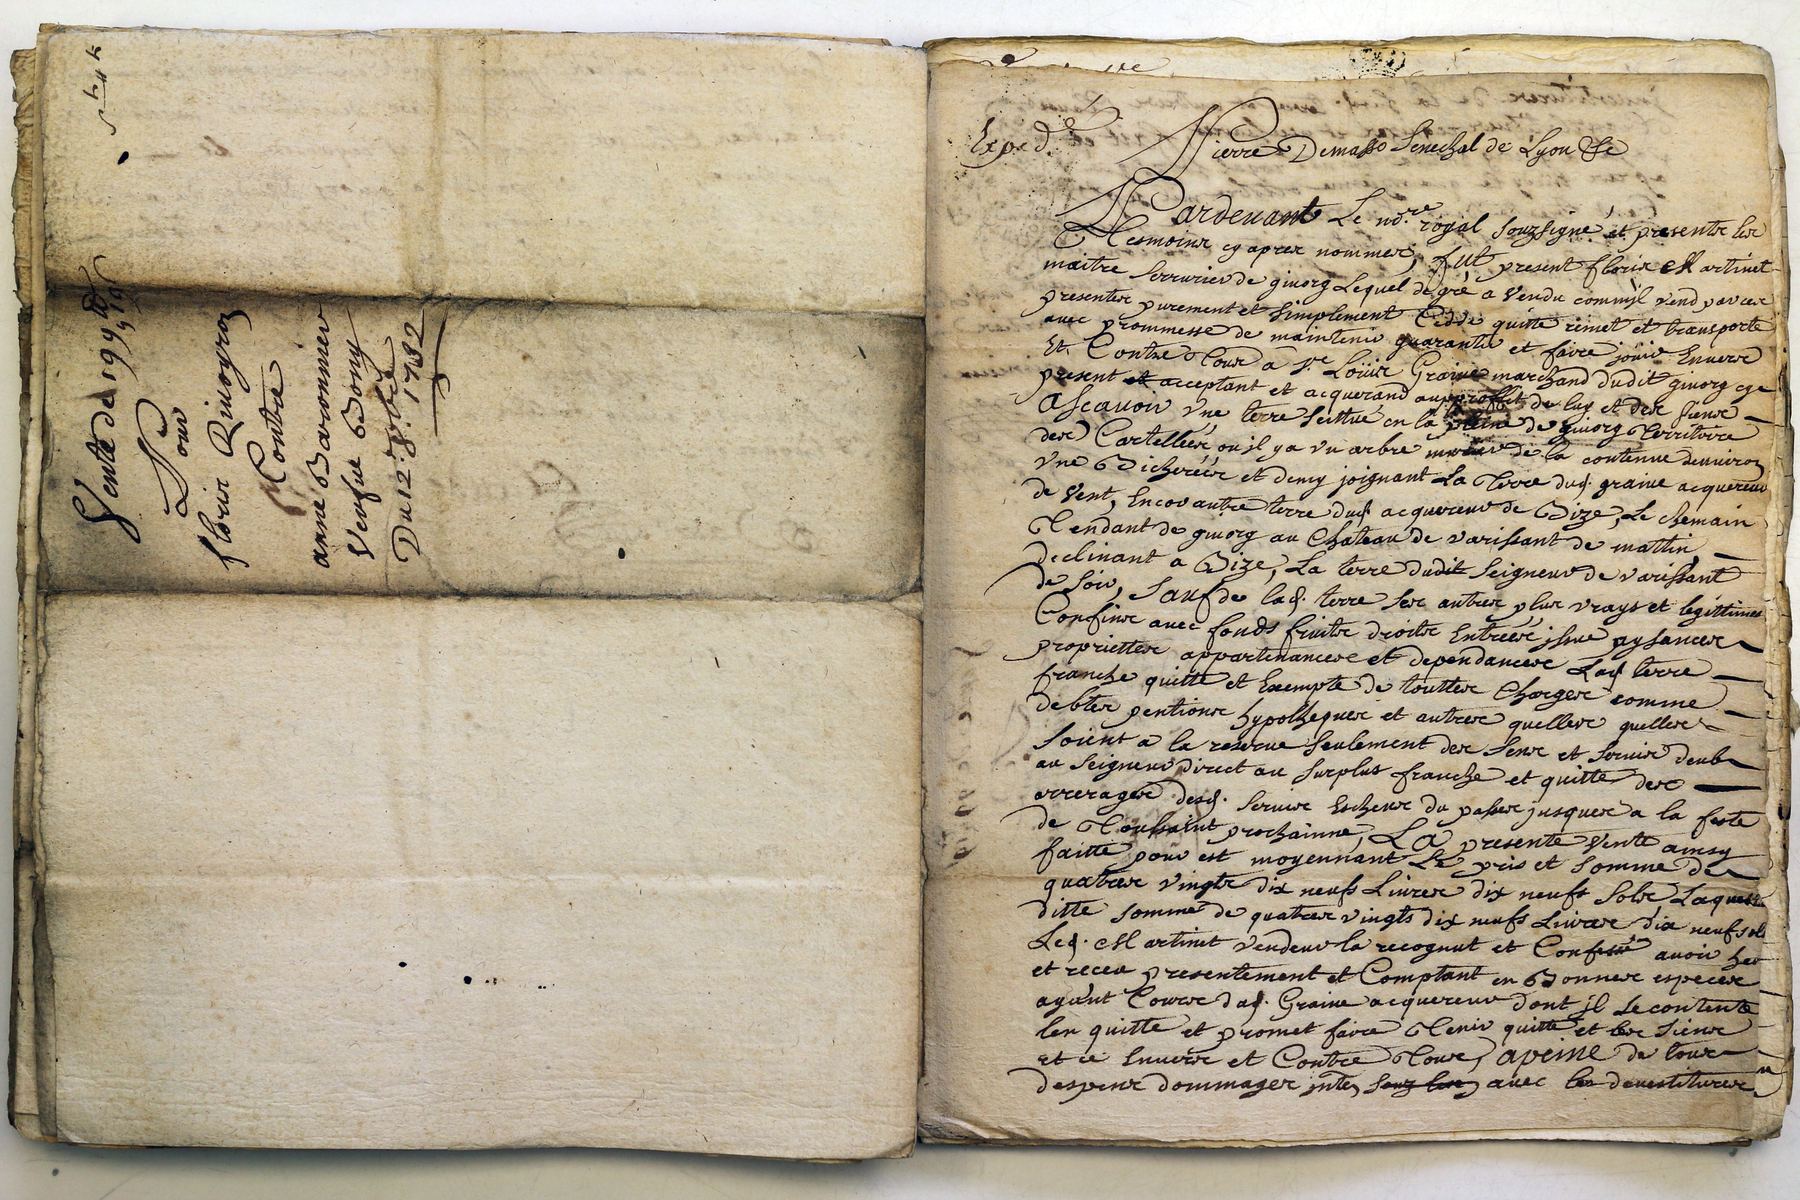 Vente de 199 ₶ 19 s
Pour
fleurie Rivoyron
Contre
anne Baronnier
Veufue Bony
Du 12. 8.bre 1732
Exped.é
Pierre Demasso Senechal de Lyon &c
Pardeuant Le no.re royal souzsigné et presents les
Tesmoins cy apres nommes, fut present fleurie Martinet
maitre serrurier de givorg Lequel de gré a vendu comm'jl vend par ces
presentes purement et simplement Cedde quitte remet et transporte
auec prommesse de maintenir guarantir et faire joüir Envers
Et Contre Tous a s.r Loüis Graine marchand dudit givorg cy
present et acceptant et acquerand aupproffit de luy et des siens
Ascavoir Vne terre scittuée en la plaine de givorg Territoire
des Cartellées ou il y a vn arbre murier de la contenue denuiron
Vne Bicherée et demy joignant La Terre dud. graine acquereur
de Vent, Encor autre terre dud. acquereur de Bize, Le Chemain
Tendant de givorg au Chateau de varissant de mattin
declinant a Bize, La terre dudit seigneur de varissant
de soir, sauf de lad. terre ses autres plus vrays et legittimes
Confins auec fonds fruits droits Entrées issues aysances
propriettes appartenances et dependances Lad. terre
franche quitte et Exempte de touttes Charges comme
debtes pentions hypotheques et autres quelles quelles
soient a la reserue seulement des sens et seruis deubs
au seigneur direct au surplus franche et quitte des
arrerages desd. seruis Escheus du passé jusques a la feste
de Toussaint prochainne, LA presente Vente ainsy
faitte pour est moyennant Le pris et somme de
quatres vingts dix neufs Livres dix neufs sols Laquelle
ditte somme de quatres vingts dix neufs Livres dix neufs sols
Led. Martinet vendeur la recognut et Confessé avoir heu
et receu presentement et Comptant en Bonnes especes
ayant Cours dud. Graine acquereur dont jl se contente
len quitte et promet faire Tenir quitte et les siens
et ce Envers et Contre Tous, apeine de tous
despens dommages jnts, auec les deuestitures